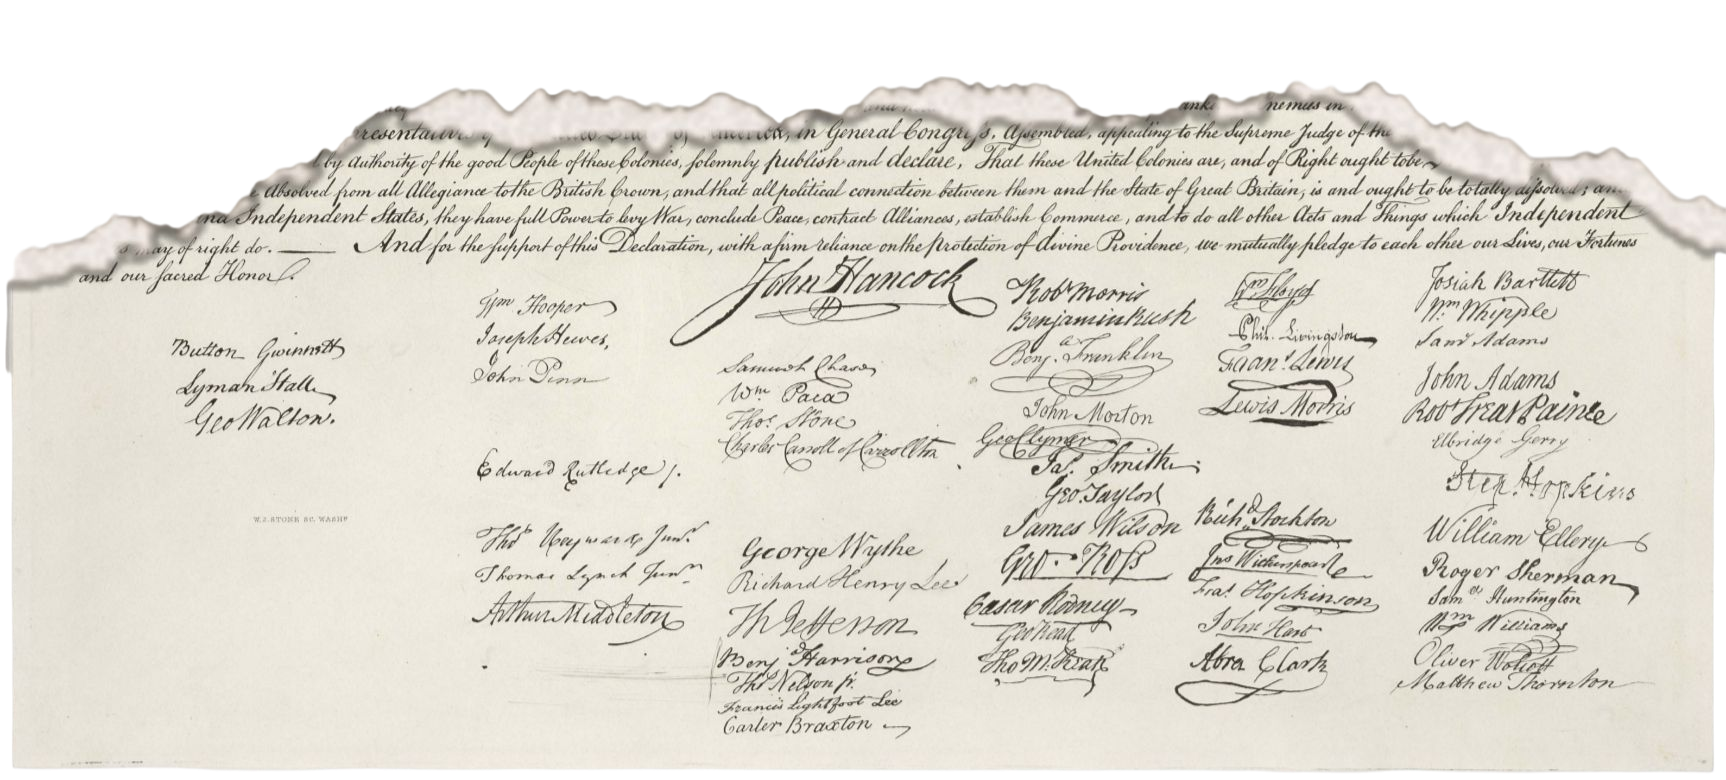 in General Congress, Assembled, appealing to the Supreme Judge of the
by Authority of the good People of these Colonies, solemnly publish and declare, That these United Colonies are, and of Right ought to be
Absolved from all Allegiance to the British Crown, and that all political connection between them and the State of Great Britain, is and ought to be totally dissolved; an
Independent States, they have full Power to levy War, conclude Peace, contract Alliances, establish Commerce, and to do all other Acts and Things which Independent
s may of right do. — And for the support of this Declaration, with a firm reliance on the protection of divine Providence, we mutually pledge to each other our Lives, our Fortunes
and our sacred Honor.
Button Gwinnett
Lyman Hall
Geo Walton.
W.J. STONE SC. WASHN
Wm Hooper
Joseph Hewes,
John Penn
Edward Rutledge /.
Thos Heyward Junr.
Thomas Lynch Junr.
Arthur Middleton
John Hancock
Samuel Chase
Wm. Paca
Thos. Stone
Charles Carroll of Carrollton
George Wythe
Richard Henry Lee
Th Jefferson
Benj Harrison
Thos Nelson jr.
Francis Lightfoot Lee
Carter Braxton
Robt Morris
Benjamin Rush
Benja. Franklin
John Morton
Geo Clymer
Jas. Smith
Geo. Taylor
James Wilson
Geo. Ross
Caesar Rodney
Geo Read
Tho M:Kean
Wm Floyd
Phil. Livingston
Frans. Lewis
Lewis Morris
Richd. Stockton
Jno Witherspoon
Fras. Hopkinson
John Hart
Abra Clark
Josiah Bartlett
Wm Whipple
Saml Adams
John Adams
Robt Treat Paine
Elbridge Gerry
Step. Hopkins
William Ellery
Roger Sherman
Saml Huntington
Wm Williams
Oliver Wolcott
Matthew Thornton